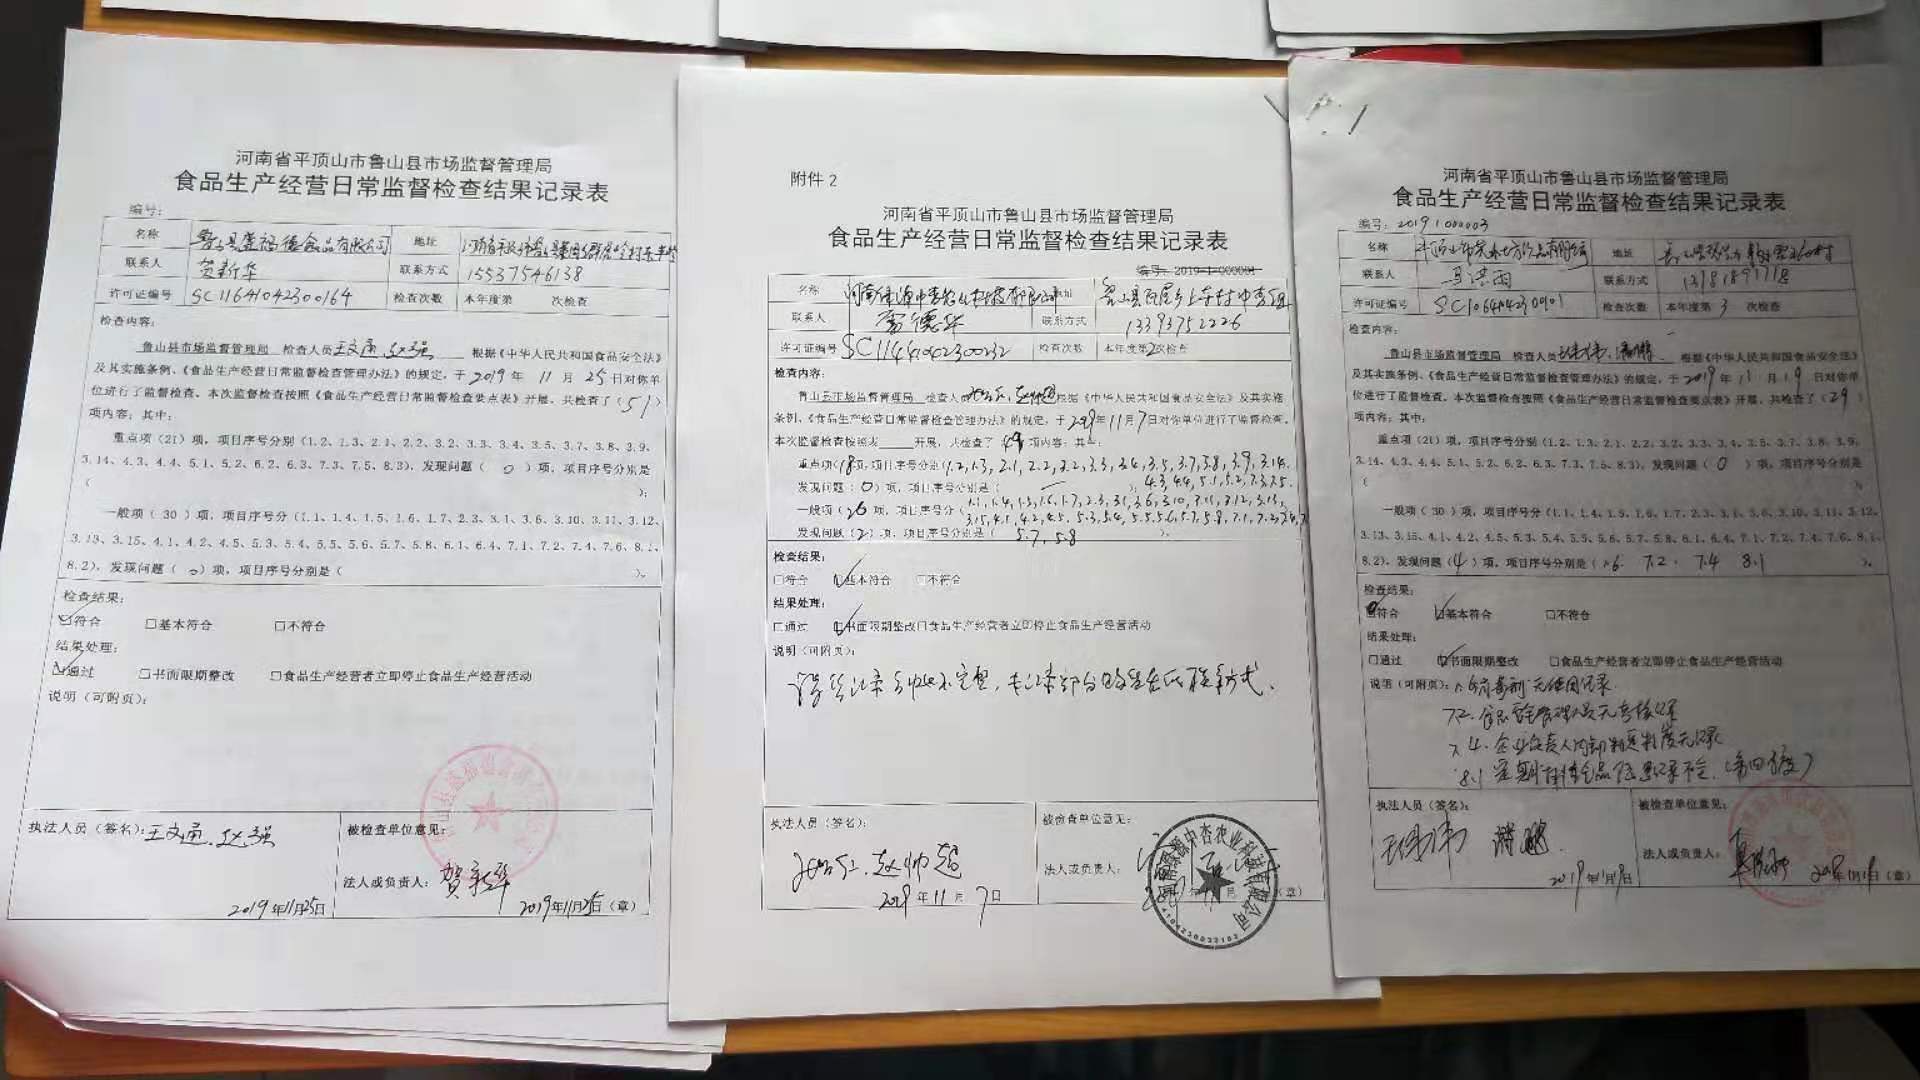 河南省平顶山市鲁山县市场监督管理局
食品生产经营日常监督检查结果记录表
编号:
名称 地址
联系人 贺新华 联系方式 15537546138
许可证编号 SC11641042300164 检查次数 本年度第 次检查
检查内容:
鲁山县市场监督管理局 检查人员 根据《中华人民共和国食品安全法》
及其实施条例、《食品生产经营日常监督检查管理办法》的规定，于2019年 11月 25日对你单
位进行了监督检查。本次监督检查按照《食品生产经营日常监督检查要点表》开展，共检查了（51）
项内容；其中:
重点项（21）项，项目序号分别（1.2、1.3、2.1、2.2、3.2、3.3、3.4、3.5、3.7、3.8、3.9、
3.14、4.3、4.4、5.1、5.2、6.2、6.3、7.3、7.5、8.3），发现问题（ 0 ）项，项目序号分别是
（ ）；
一般项（ 30 ）项，项目序号分（1.1、1.4、1.5、1.6、1.7、2.3、3.1、3.6、3.10、3.11、3.12、
3.13、3.15、4.1、4.2、4.5、5.3、5.4、5.5、5.6、5.7、5.8、6.1、6.4、7.1、7.2、7.4、7.6、8.1、
8.2），发现问题（ 0 ）项，项目序号分别是（ ）。
检查结果:
☑符合 □基本符合 □不符合
结果处理:
☑通过 □书面限期整改 □食品生产经营者立即停止食品生产经营活动
说明（可附页）:
执法人员（签名）: 被检查单位意见:
法人或负责人: 贺新华
2019年11月25日 2019年11月25日（章）
附件 2
河南省平顶山市鲁山县市场监督管理局
食品生产经营日常监督检查结果记录表
编号: 2019-1-000001
名称
联系人 雷德华 联系方式 13393752226
许可证编号 SC11441042300232 检查次数 本年度第2次检查
检查内容:
鲁山县市场监督管理局 检查人员 根据《中华人民共和国食品安全法》及其实施
条例、《食品生产经营日常监督检查管理办法》的规定，于2019年11月7日对你单位进行了监督检查。
本次监督检查按照表 开展，共检查了 项内容；其中:
重点项（18）项，项目序号分别（1.2,1.3,2.1,2.2,3.2,3.3,3.4,3.5,3.7,3.8,3.9,3.14.
4.3,4.4,5.1,5.2,7.3,7.5.
发现问题（0）项，项目序号分别是（ ）；
一般项（26）项，项目序号分（1.1,1.4,1.5,1.6,1.7,2.3,3.1,3.6,3.10,3.11,3.12,3.13,
3.15,4.1,4.2,4.5,5.3,5.4,5.5,5.6,5.7,5.8,7.1,7.2,7.4,7.
发现问题（2）项，项目序号分别是（ 5.7,5.8 ）。
检查结果:
□符合 ☑基本符合 □不符合
结果处理:
□通过 ☑书面限期整改□食品生产经营者立即停止食品生产经营活动
说明（可附页）:
执法人员（签名）: 被检查单位意见:
赵帅超 法人或负责人:
2019年11月7日 （章）
河南省平顶山市鲁山县市场监督管理局
食品生产经营日常监督检查结果记录表
编号: 20191000003
名称 地址
联系人 联系方式 13781891718
许可证编号 检查次数 本年度第 3 次检查
检查内容:
鲁山县市场监督管理局 检查人员 根据《中华人民共和国食品安全法》
及其实施条例、《食品生产经营日常监督检查管理办法》的规定，于2019年11月19日对你单
位进行了监督检查。本次监督检查按照《食品生产经营日常监督检查要点表》开展，共检查了（29）
项内容；其中:
重点项（21）项，项目序号分别（1.2、1.3、2.1、2.2、3.2、3.3、3.4、3.5、3.7、3.8、3.9、
3.14、4.3、4.4、5.1、5.2、6.2、6.3、7.3、7.5、8.3），发现问题（ 0 ）项，项目序号分别是
（ ）；
一般项（ 30 ）项，项目序号分（1.1、1.4、1.5、1.6、1.7、2.3、3.1、3.6、3.10、3.11、3.12、
3.13、3.15、4.1、4.2、4.5、5.3、5.4、5.5、5.6、5.7、5.8、6.1、6.4、7.1、7.2、7.4、7.6、8.1、
8.2），发现问题（4）项，项目序号分别是（1.6 7.2. 7.4 8.1 ）。
检查结果:
符合 ☑基本符合 □不符合
结果处理:
□通过 ☑书面限期整改 □食品生产经营者立即停止食品生产经营活动
说明（可附页）:
执法人员（签名）: 被检查单位意见:
法人或负责人:
（章）